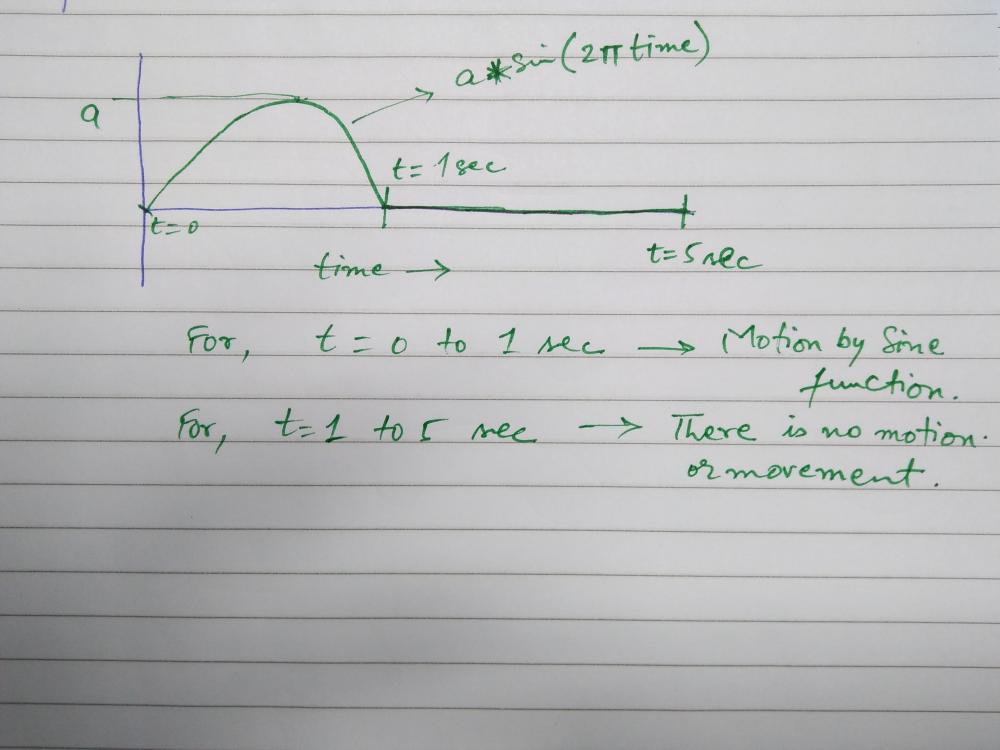 a*sin(2π time)
a
t = 1 sec
t = 0
t = 5 sec
time →
For, t = 0 to 1 sec → Motion by Sine
function.
For, t = 1 to 5 sec → There is no motion.
or movement.